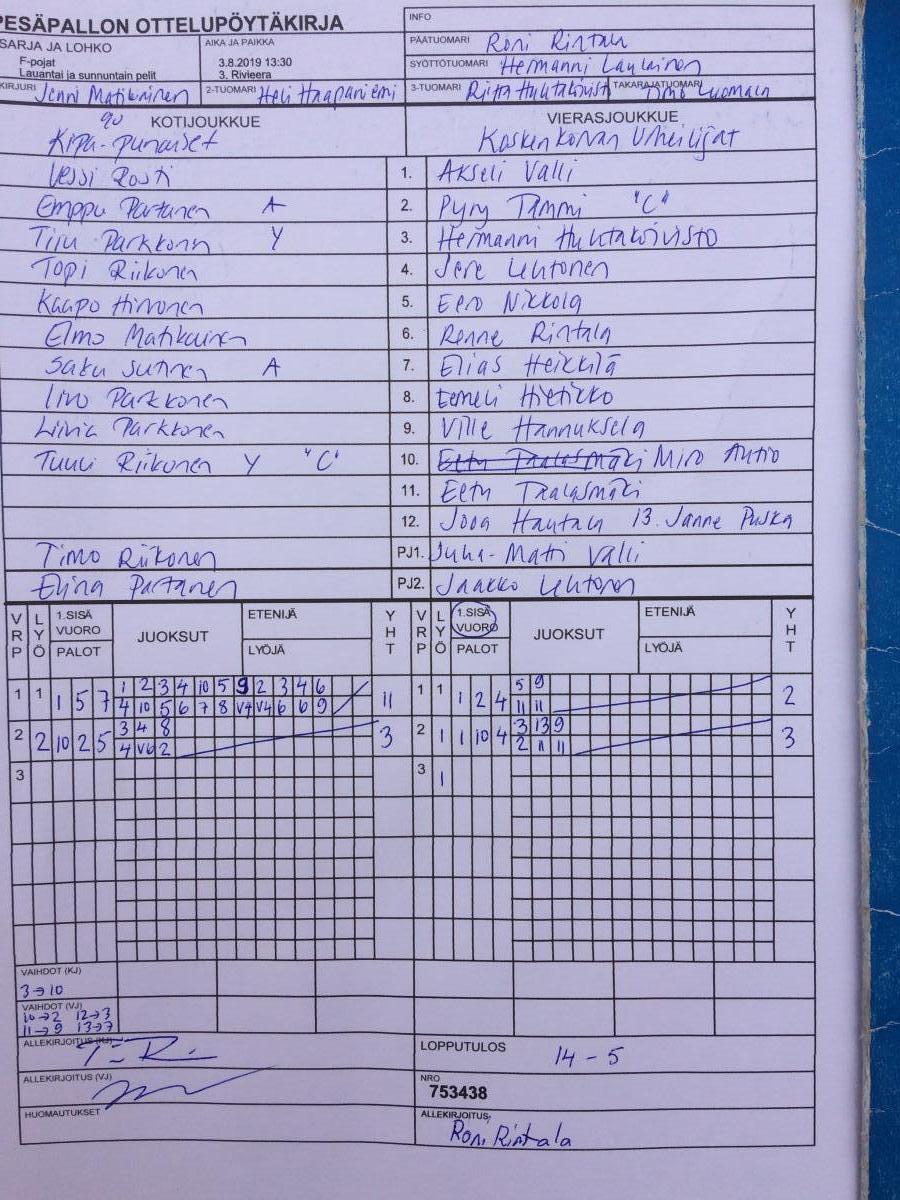 PESÄPALLON OTTELUPÖYTÄKIRJA
INFO
SARJA JA LOHKO
F-pojat
Lauantai ja sunnuntain pelit
AIKA JA PAIKKA
3.8.2019 13:30
3. Rivieera
PÄÄTUOMARI Roni Rintala
SYÖTTÖTUOMARI Hermanni Laulainen
KIRJURI Jenni Matikainen 2-TUOMARI Heli Haapaniemi 3-TUOMARI Riitta Huhtakoivisto TAKARAJATUOMARI Timo Luomala
KOTIJOUKKUE VIERASJOUKKUE
Kipa-punaiset Koskenkorvan Urheilijat
Vessi Rosti 1. Akseli Valli
Emppu Partanen A 2. Pyry Tammi "C"
Tiju Parkkonen Y 3. Hermanni Huhtakoivisto
Topi Riikonen 4. Jere Lehtonen
Kaapo Hirvonen 5. Eero Nikkola
Elmo Matikainen 6. Renne Rintala
Saku Sutinen A 7. Elias Heikkilä
Iivo Parkkonen 8. Eemeli Hietikko
Liivia Parkkonen 9. Ville Hannuksela
Tuuli Riikonen Y "C" 10. Eetu Taalasmäki Miro Autio
11. Eetu Taalasmäki
12. Joona Hautala 13. Janne Puska
Timo Riikonen PJ1. Juha-Matti Valli
Elina Partanen PJ2. Jaakko Lehtonen
VRP LYÖ 1.SISÄ VUORO PALOT JUOKSUT ETENIJÄ LYÖJÄ YHT VRP LYÖ 1.SISÄ VUORO PALOT JUOKSUT ETENIJÄ LYÖJÄ YHT
1 1 1 5 7 1 2 3 4 10 5 9 2 3 4 6 11 1 1 1 2 4 5 9 2
4 10 5 6 7 8 V4 V4 6 6 9 11 11
2 2 10 2 5 3 4 8 3 2 1 1 10 4 3 13 9 3
4 V6 2 2 11 11
3 3 1
VAIHDOT (KJ)
3→10
VAIHDOT (VJ)
10→2 12→3
11→9 13→7
ALLEKIRJOITUS (KJ)
LOPPUTULOS 14 - 5
ALLEKIRJOITUS (VJ)
NRO
753438
HUOMAUTUKSET
ALLEKIRJOITUS:
Roni Rintala